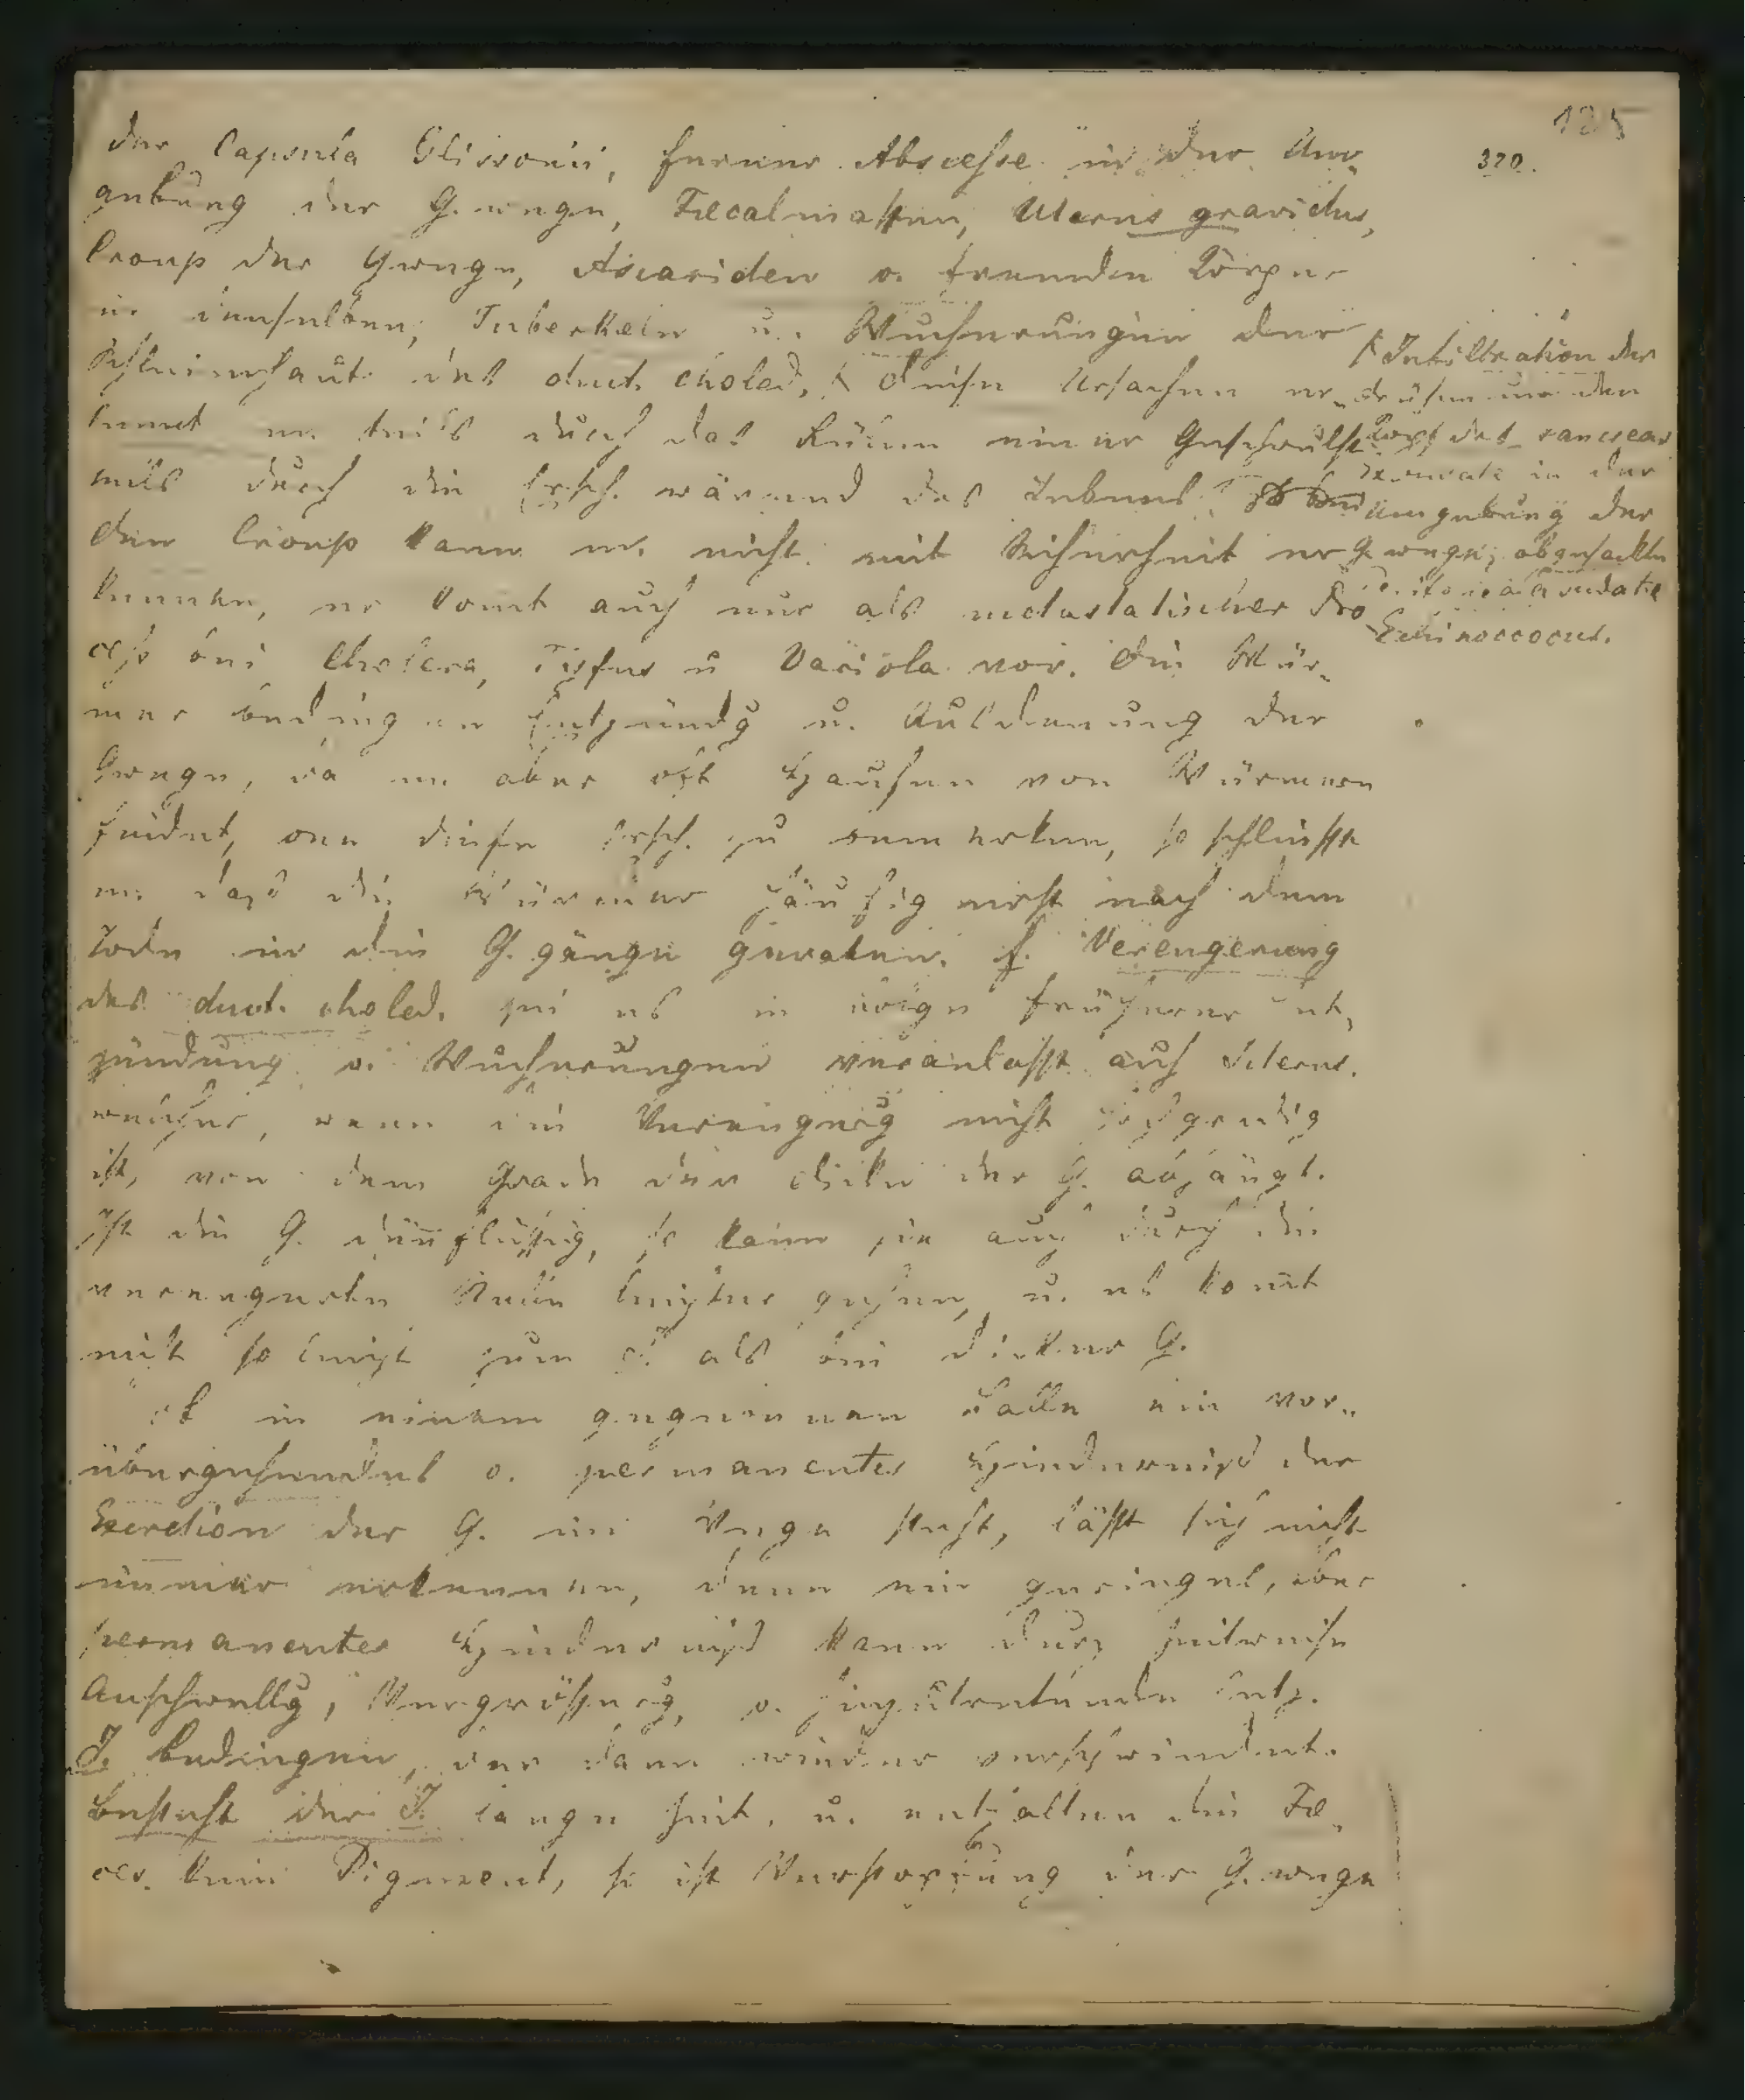 320.
der Capsula Glissonii, ferner Abscesse in der Um-
gebung der G.wege, Fäcalmassen, Uterus gravidus,
Croup der Gwege, Ascariden o. fremden Körper
in denselben, Tuberkeln u. Wucherungen der
Schleimhaut des duct. choled. Diese Ursachen er-
kennt m. teils durch das Fülen einer Geschwulst
teils durch die Ersch. wärend des Lebens.
den Croup kann m. nicht mit Sicherheit er
kennen, er komt auch nur als metastatischer Pro
cess bei Cholera, Tyfus u Variola vor. Die Wür-
mer bedingen Entzündg u. Ausdenung der
Gwege, da m. aber oft Haufen von Würmern
findet, one diese Ersch. zu bemerken, so schliesst
m. dass die Würmer häufig erst nach dem
Tode in die G.gänge geraten. f. Verengerung
des duct. choled. sei es in folge früherer Ent-
zündung o. Wucherungen veranlasst auch Icterus.
welcher, wenn die Verengerg nicht hochgradig
ist, von dem Grade der Dicke der G. abhängt.
Ist die G. dünnflüssig, so kann sie auch durch die
verengerte Stelle leichter gehen, u. es komt
nicht so leicht zum I. als bei dicker G.
Ob in einem gegebenen Falle ein vor-
übergehendes o. permanentes Hinderniss der
Excretion der G. im Wege steht, lässt sich nicht
immer erkennen, denn ein geringes, aber
permanentes Hinderniss kann durch zeitweise
Anschwellg, Vergrösserg, o. hinzutretende Entz.
I. bedingen, der dann wieder verschwindet.
Besteht der I. lange Zeit, u. enthalten die Fæ-
ces kein Pigment, so ist Verstopfung der G.wege
Infiltration der
drüsen um den
Kopf des Pancreas
Exsudate in der
Umgebung der
G.wege, abgesackte
Peritonealexsudate
Echinococcus.